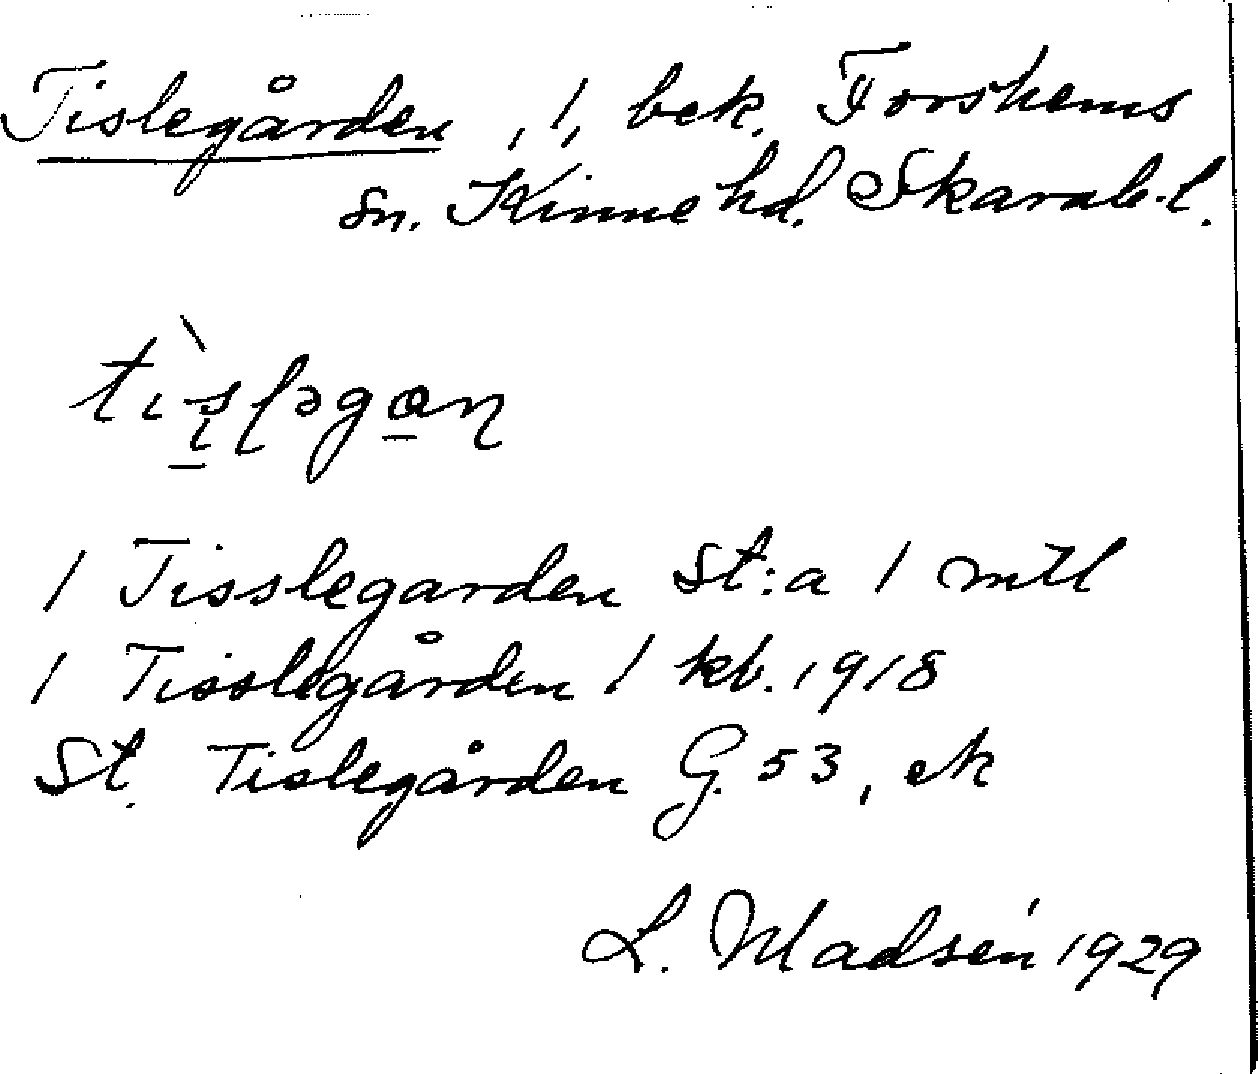 Tislegården , 1, bek. Forshems
sn. Kinne hd. Skarab. l.
1 Tisslegarden St:a 1 mtl
1 Tisslegården 1 kb. 1918
St. Tislegården G. 53, ek
L. Madsén 1929